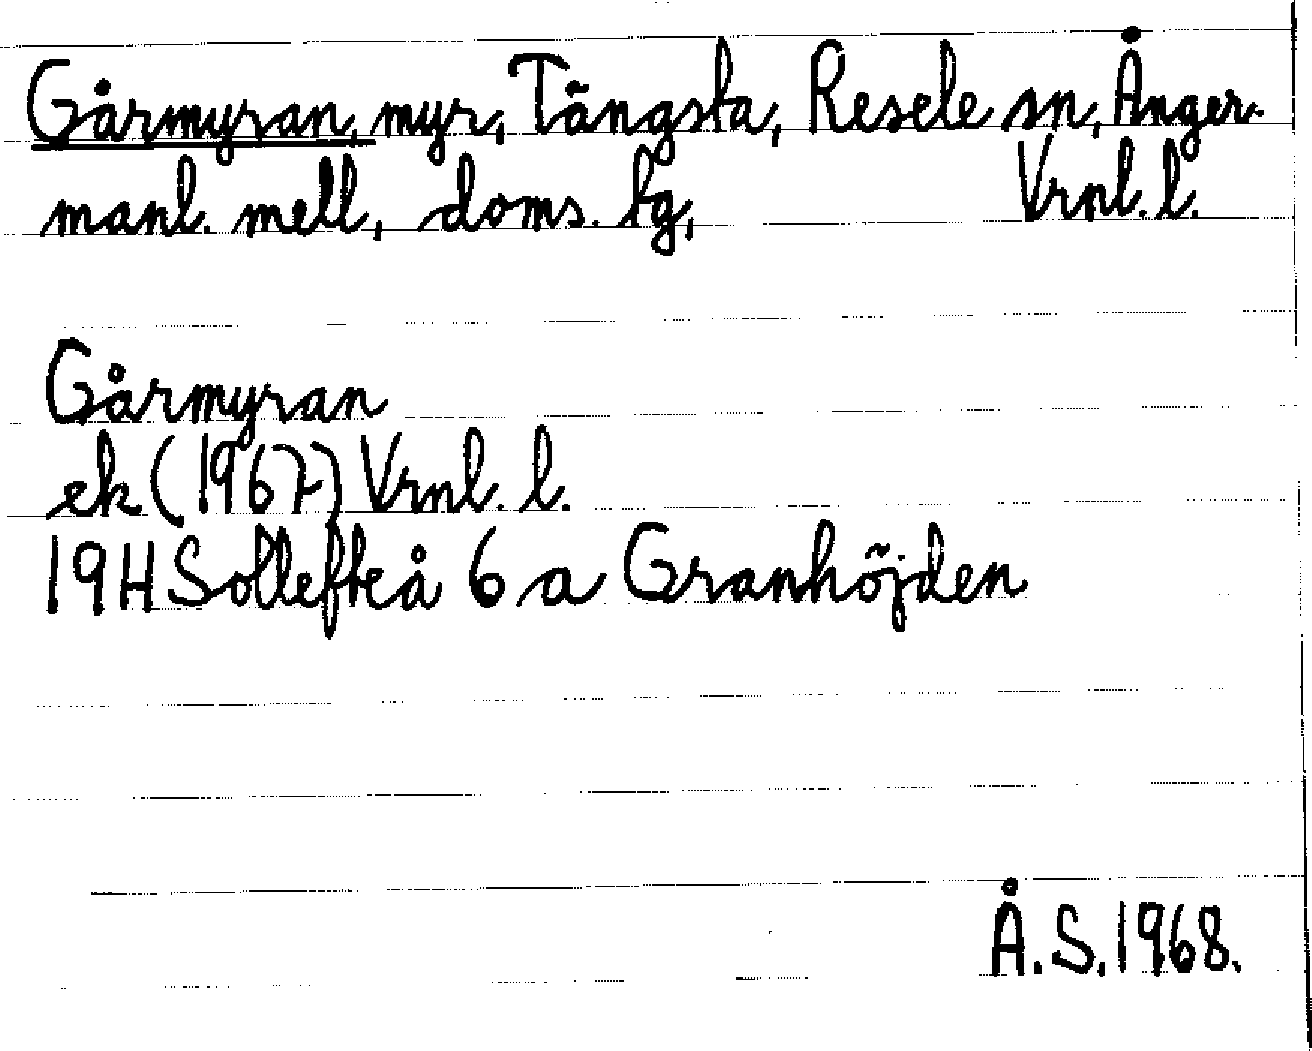 Gårmyran, myr, Tängsta, Resele sn, Ånger-
manl. mell, doms. lg, Vrnl. l.
Gårmyran
ek (1967) Vrnl. l.
19H Sollefteå 6 a Granhöjden
Å. S. 1968.